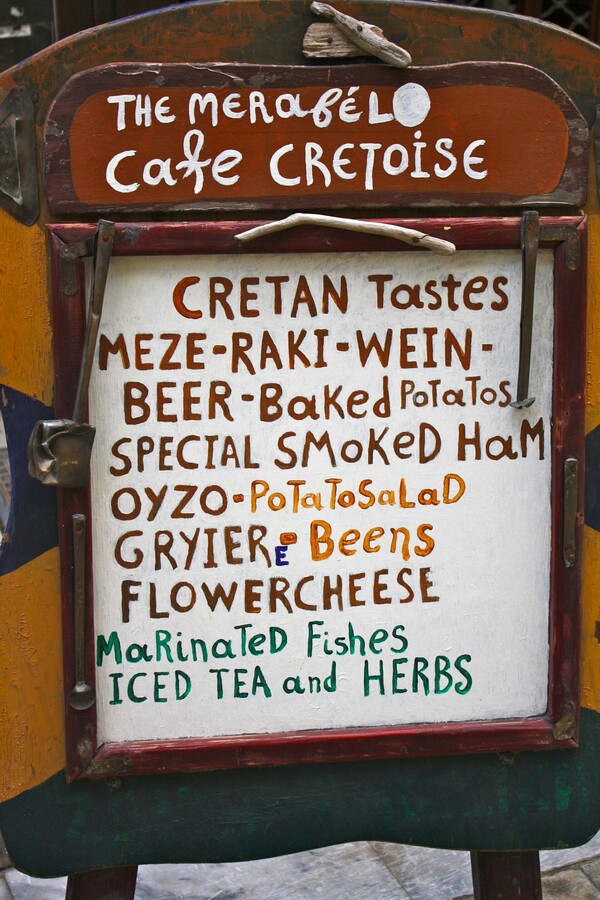 THE MERABÉLO
Cafe CRETOISE
CRETAN Tastes
MEZE-RAKI-WEIN-
BEER-Baked PoTaTos
SPECIAL SMoKeD HaM
OYZO-PoTaToSaLaD
GRYIERE-Beens
FLOWERCHEESE
MaRinaTeD Fishes
ICED TEA and HERBS